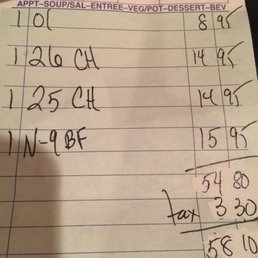 APPT-SOUP/SAL-ENTREE-VEG/POT-DESSERT-BEV
1 01 8 95
1 26 CH 14 95
1 25 CH 14 95
1 N-9 BF 15 95
54 80
tax 3 30
58 10